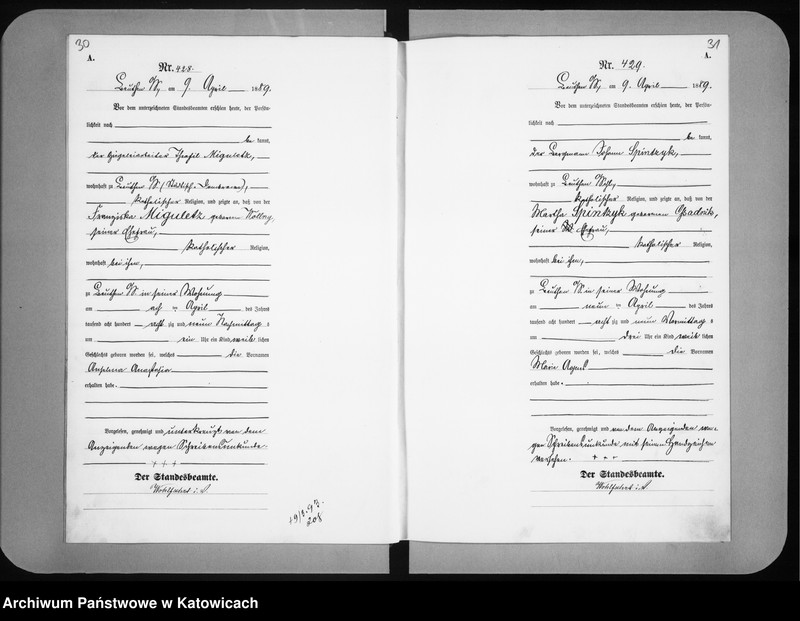 30
A.
Nr. 428.
Beuthen O/S, am 9. April 1889.
Vor dem unterzeichneten Standesbeamten erschien heute, der Persön-
lichkeit nach
be kannt,
der Ziegeleiarbeiter Theofil Miguletz,
wohnhaft zu Beuthen O/S
katholischer Religion, und zeigte an, daß von der
Franziska Miguletz geborenen
seiner Ehefrau,
katholischer Religion,
wohnhaft bei ihm,
zu Beuthen O/S in seiner Wohnung
am April des Jahres
tausend acht hundert acht zig und neun Nachmittags
um ein Uhr ein Kind weib lichen
Geschlechts geboren worden sei, welches die Vornamen
Anastasia
erhalten habe.
Vorgelesen, genehmigt und unterkreuzt von dem
Anzeigenden wegen Schreibensunkunde.
+ + +
Der Standesbeamte.
Wohlfahrt i.V.
31
A.
Nr. 429.
Beuthen O/S, am 9. April 1889.
Vor dem unterzeichneten Standesbeamten erschien heute, der Persön-
lichkeit nach
be kannt,
der Bergmann Johann Spintzyk,
wohnhaft zu Beuthen O/S,
katholischer Religion, und zeigte an, daß von der
Martha Spintzyk geborenen
seiner Ehefrau,
katholischer Religion,
wohnhaft bei ihm,
zu Beuthen O/S in seiner Wohnung
am neun ten April des Jahres
tausend acht hundert acht zig und neun Vormittag s
um drei Uhr ein Kind weib lichen
Geschlechts geboren worden sei, welches die Vornamen
Marie
erhalten habe.
Vorgelesen, genehmigt und von dem Anzeigenden we-
gen Schreibensunkunde mit seinem Handzeichen
versehen. + + +
Der Standesbeamte.
Wohlfahrt i.V.
208
Archiwum Państwowe w Katowicach